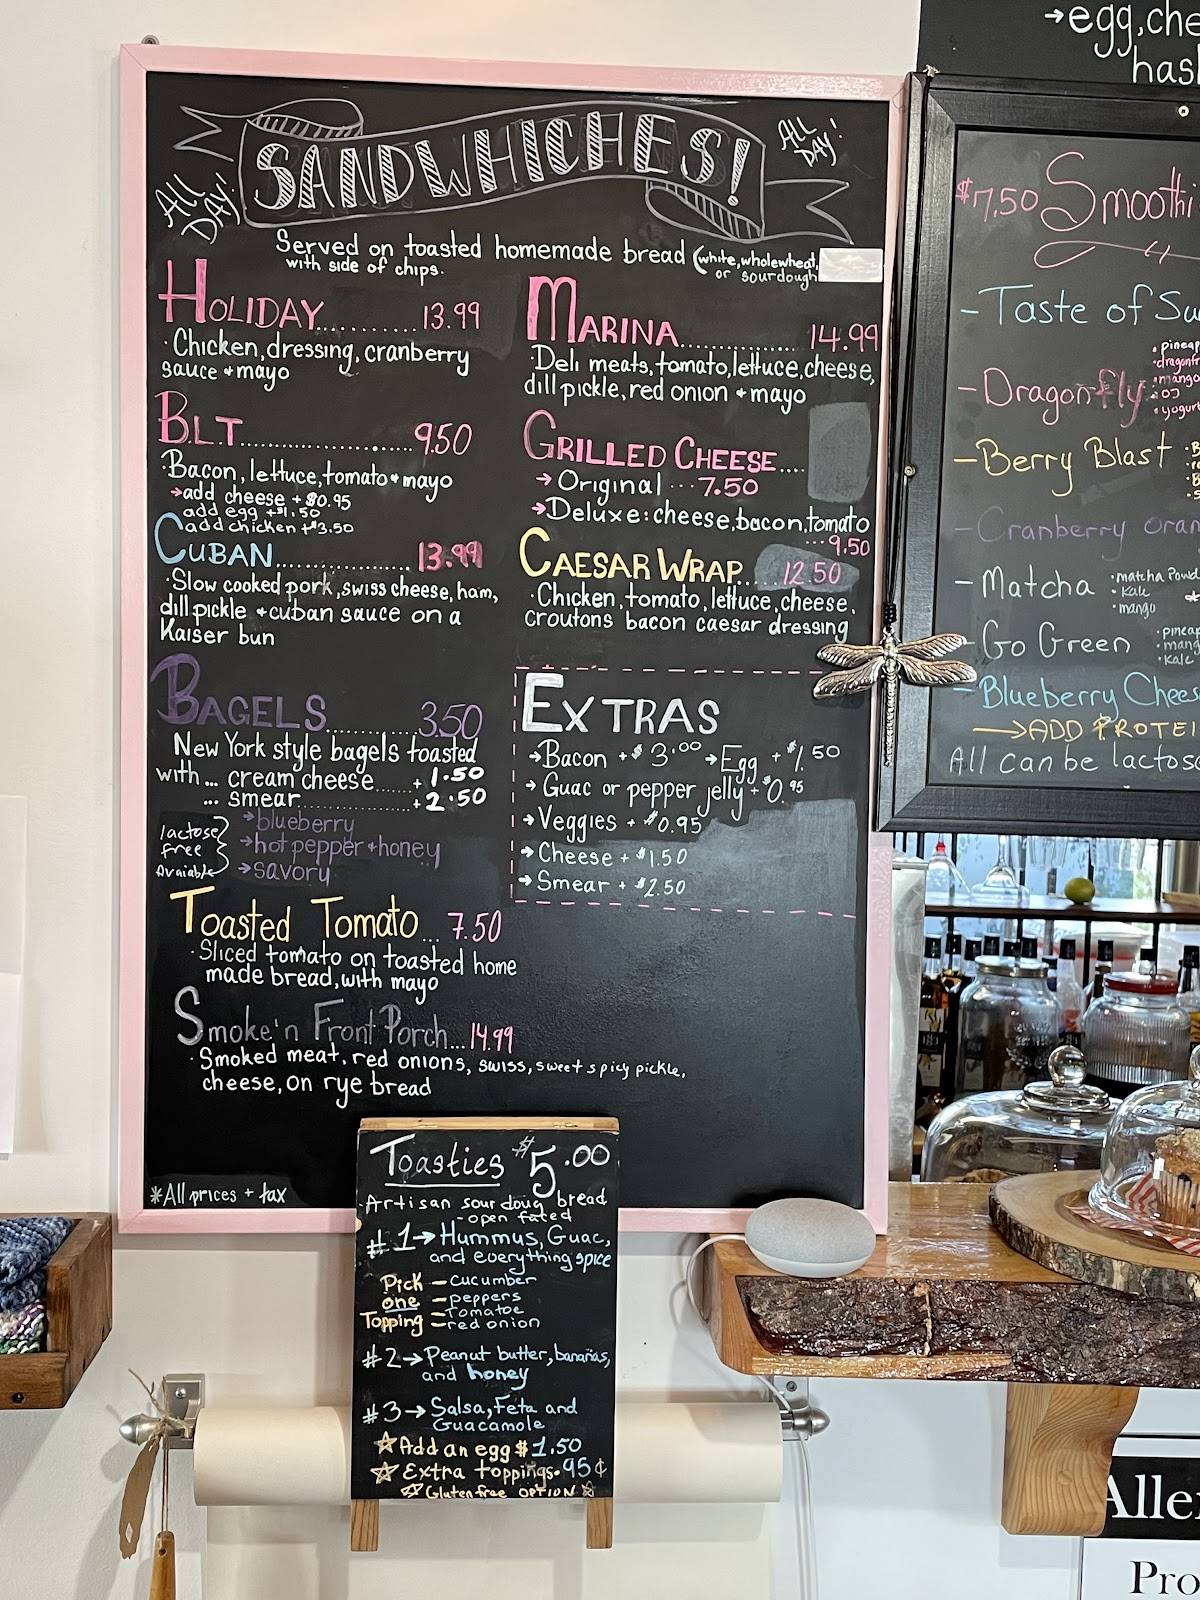 SANDWHICHES!
ALL DAY!
ALL DAY!
Served on toasted homemade bread (white, wholewheat,
with side of chips. or sourdough
HOLIDAY.......... 13.99
· Chicken, dressing, cranberry
sauce + mayo
B.L.T................. 9.50
· Bacon, lettuce, tomato + mayo
→ add cheese + $0.95
add egg + $1.50
add chicken + $3.50
CUBAN................. 13.99
· Slow cooked pork, swiss cheese, ham,
dill pickle + cuban sauce on a
Kaiser bun
BAGELS......... 3.50
New York style bagels toasted
with... cream cheese...... + 1.50
... smear............ + 2.50
lactose free Avaiable
→ blueberry
→ hot pepper + honey
→ savory
TOASTED TOMATO... 7.50
· Sliced tomato on toasted home
made bread, with mayo
Smoke'n Front Porch... 14.99
· Smoked meat, red onions, swiss, sweet spicy pickle,
cheese, on rye bread
*All prices + tax
MARINA............... 14.99
· Deli meats, tomato, lettuce, cheese,
dill pickle, red onion + mayo
GRILLED CHEESE....
→ Original ... 7.50
→ Deluxe: cheese, bacon, tomato
... 9.50
CAESAR WRAP.... 12.50
· Chicken, tomato, lettuce, cheese,
croutons bacon caesar dressing
EXTRAS
→ Bacon + $3.00 → Egg + $1.50
→ Guac or pepper jelly + $0.95
→ Veggies + $0.95
→ Cheese + $1.50
→ Smear + $2.50
Toasties $5.00
Artisan sour doug bread
- open fated
#1 → Hummus, Guac,
and everything spice
Pick one Topping
- cucumber
- peppers
- Tomatoe
- red onion
#2 → Peanut butter, bananas,
and honey
#3 → Salsa, Feta and
Guacamole
☆ Add an egg $1.50
☆ Extra toppings • 95¢
☆ Gluten free OPTION ☆
→ egg, che
hash
$7.50 Smoothi
- Taste of Su
- Dragonfly
• pineap
• dragonfr
• mango
• OJ
• yogurt
- Berry Blast
- Cranberry Oran
- Matcha
• matcha Powd
• Kale
• mango
- Go Green
• pineap
• mang
• Kale
- Blueberry Chees
→ ADD PROTEI
All can be lactose
Alle
Pro